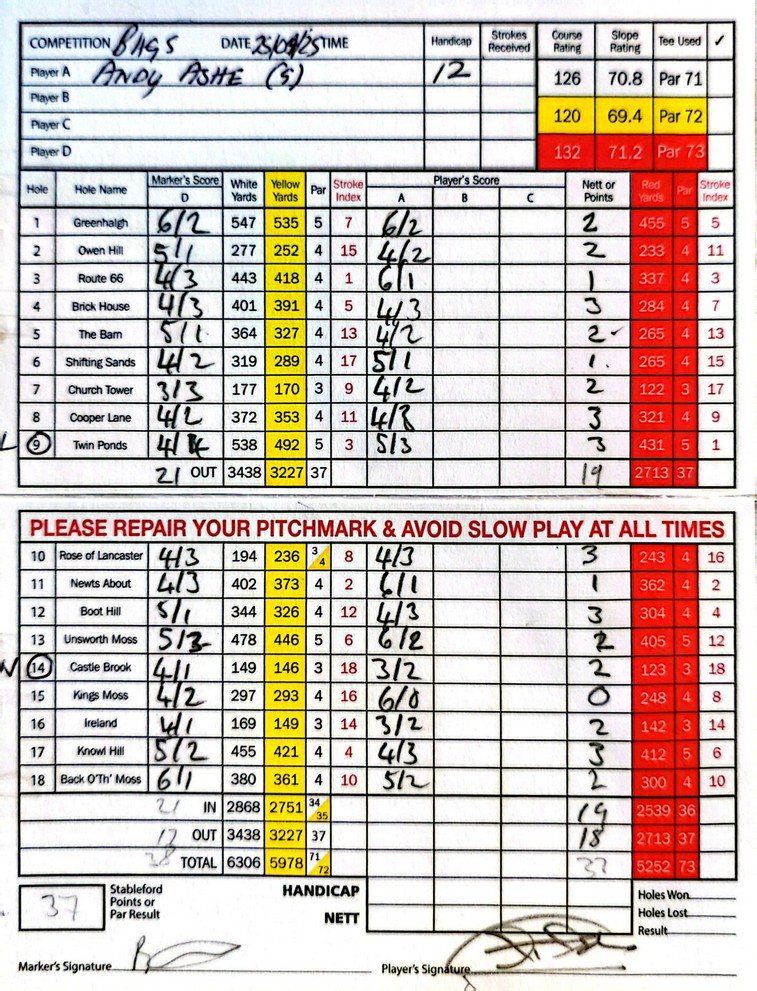 COMPETITION BAGS DATE 25/09/25 TIME Handicap Strokes Received Course Rating Slope Rating Tee Used ✓
Player A ANDY ASHE (S) 12 126 70.8 Par 71
Player B
Player C 120 69.4 Par 72
Player D 132 71.2 Par 73
Hole Hole Name Marker's Score D White Yards Yellow Yards Par Stroke Index Player's Score A B C Nett or Points Red Yards Par Stroke Index
1 Greenhalgh 6/2 547 535 5 7 6/2 2 455 5 5
2 Owen Hill 5/1 277 252 4 15 4/2 2 233 4 11
3 Route 66 4/3 443 418 4 1 6/1 1 337 4 3
4 Brick House 4/3 401 391 4 5 4/3 3 284 4 7
5 The Barn 5/1 364 327 4 13 4/2 2 265 4 13
6 Shifting Sands 4/2 319 289 4 17 5/1 1 265 4 15
7 Church Tower 3/3 177 170 3 9 4/2 2 122 3 17
8 Cooper Lane 4/2 372 353 4 11 4/3 3 321 4 9
L 9 Twin Ponds 4/4 538 492 5 3 5/3 3 431 5 1
21 OUT 3438 3227 37 19 2713 37
PLEASE REPAIR YOUR PITCHMARK & AVOID SLOW PLAY AT ALL TIMES
10 Rose of Lancaster 4/3 194 236 3/4 8 4/3 3 243 4 16
11 Newts About 4/3 402 373 4 2 6/1 1 362 4 2
12 Boot Hill 5/1 344 326 4 12 4/3 3 304 4 4
13 Unsworth Moss 5/3 478 446 5 6 6/2 2 405 5 12
N 14 Castle Brook 4/1 149 146 3 18 3/2 2 123 3 18
15 Kings Moss 4/2 297 293 4 16 6/0 0 248 4 8
16 Ireland 4/1 169 149 3 14 3/2 2 142 3 14
17 Knowl Hill 5/2 455 421 4 4 4/3 3 412 5 6
18 Back O'Th' Moss 6/1 380 361 4 10 5/2 2 300 4 10
21 IN 2868 2751 34/35 19 2539 36
17 OUT 3438 3227 37 18 2713 37
38 TOTAL 6306 5978 71/72 37 5252 73
37 Stableford Points or Par Result HANDICAP NETT
Holes Won
Holes Lost
Result
Marker's Signature Player's Signature